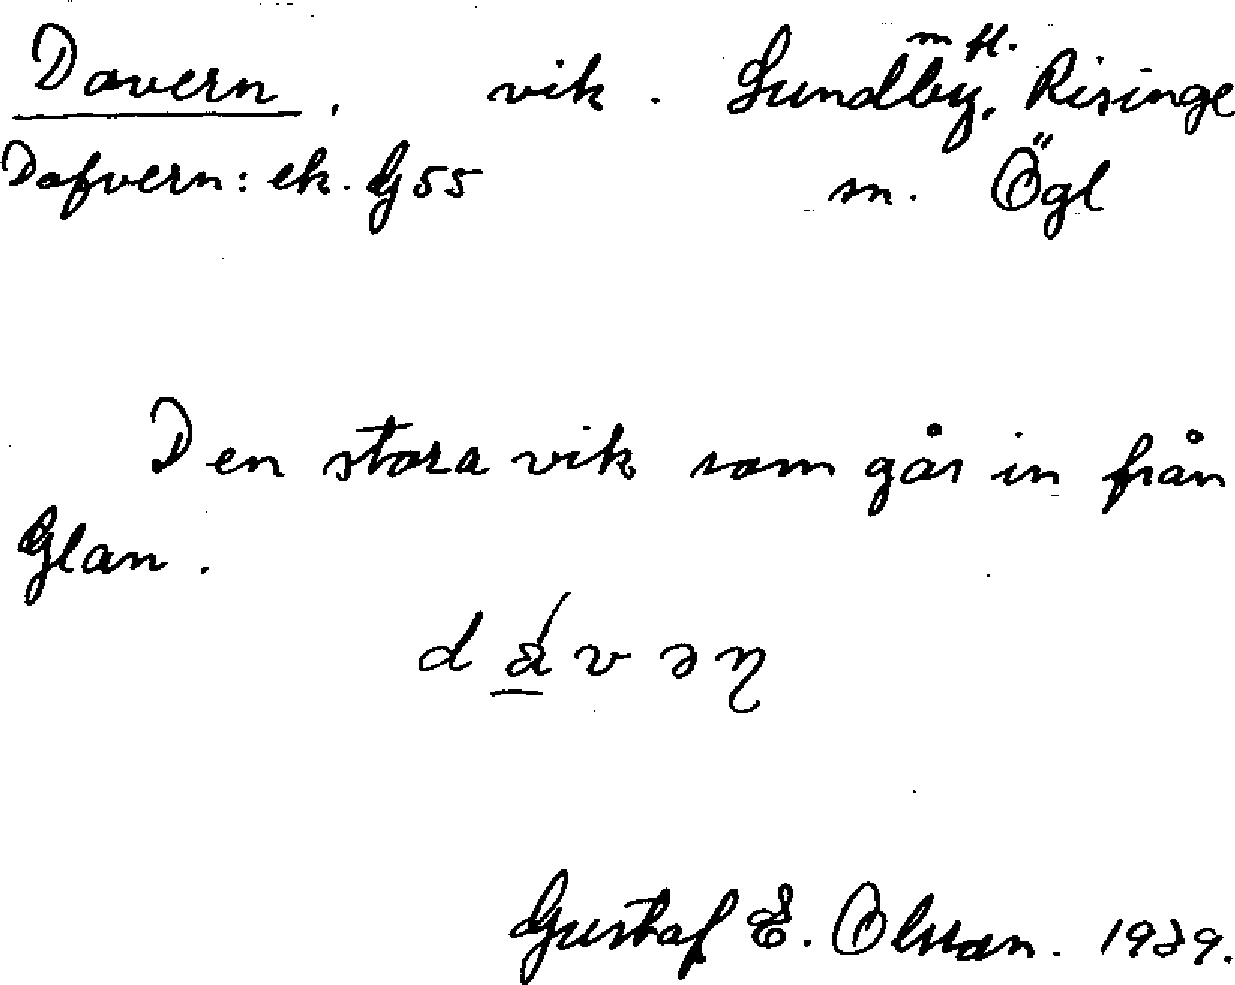 Davern, vik. Lundby, m fl. Risinge
Dafvern: ek. G 55 sn. Ögl
Den stora vik som går in från
Glan.
Gustaf E. Olsson. 1929.